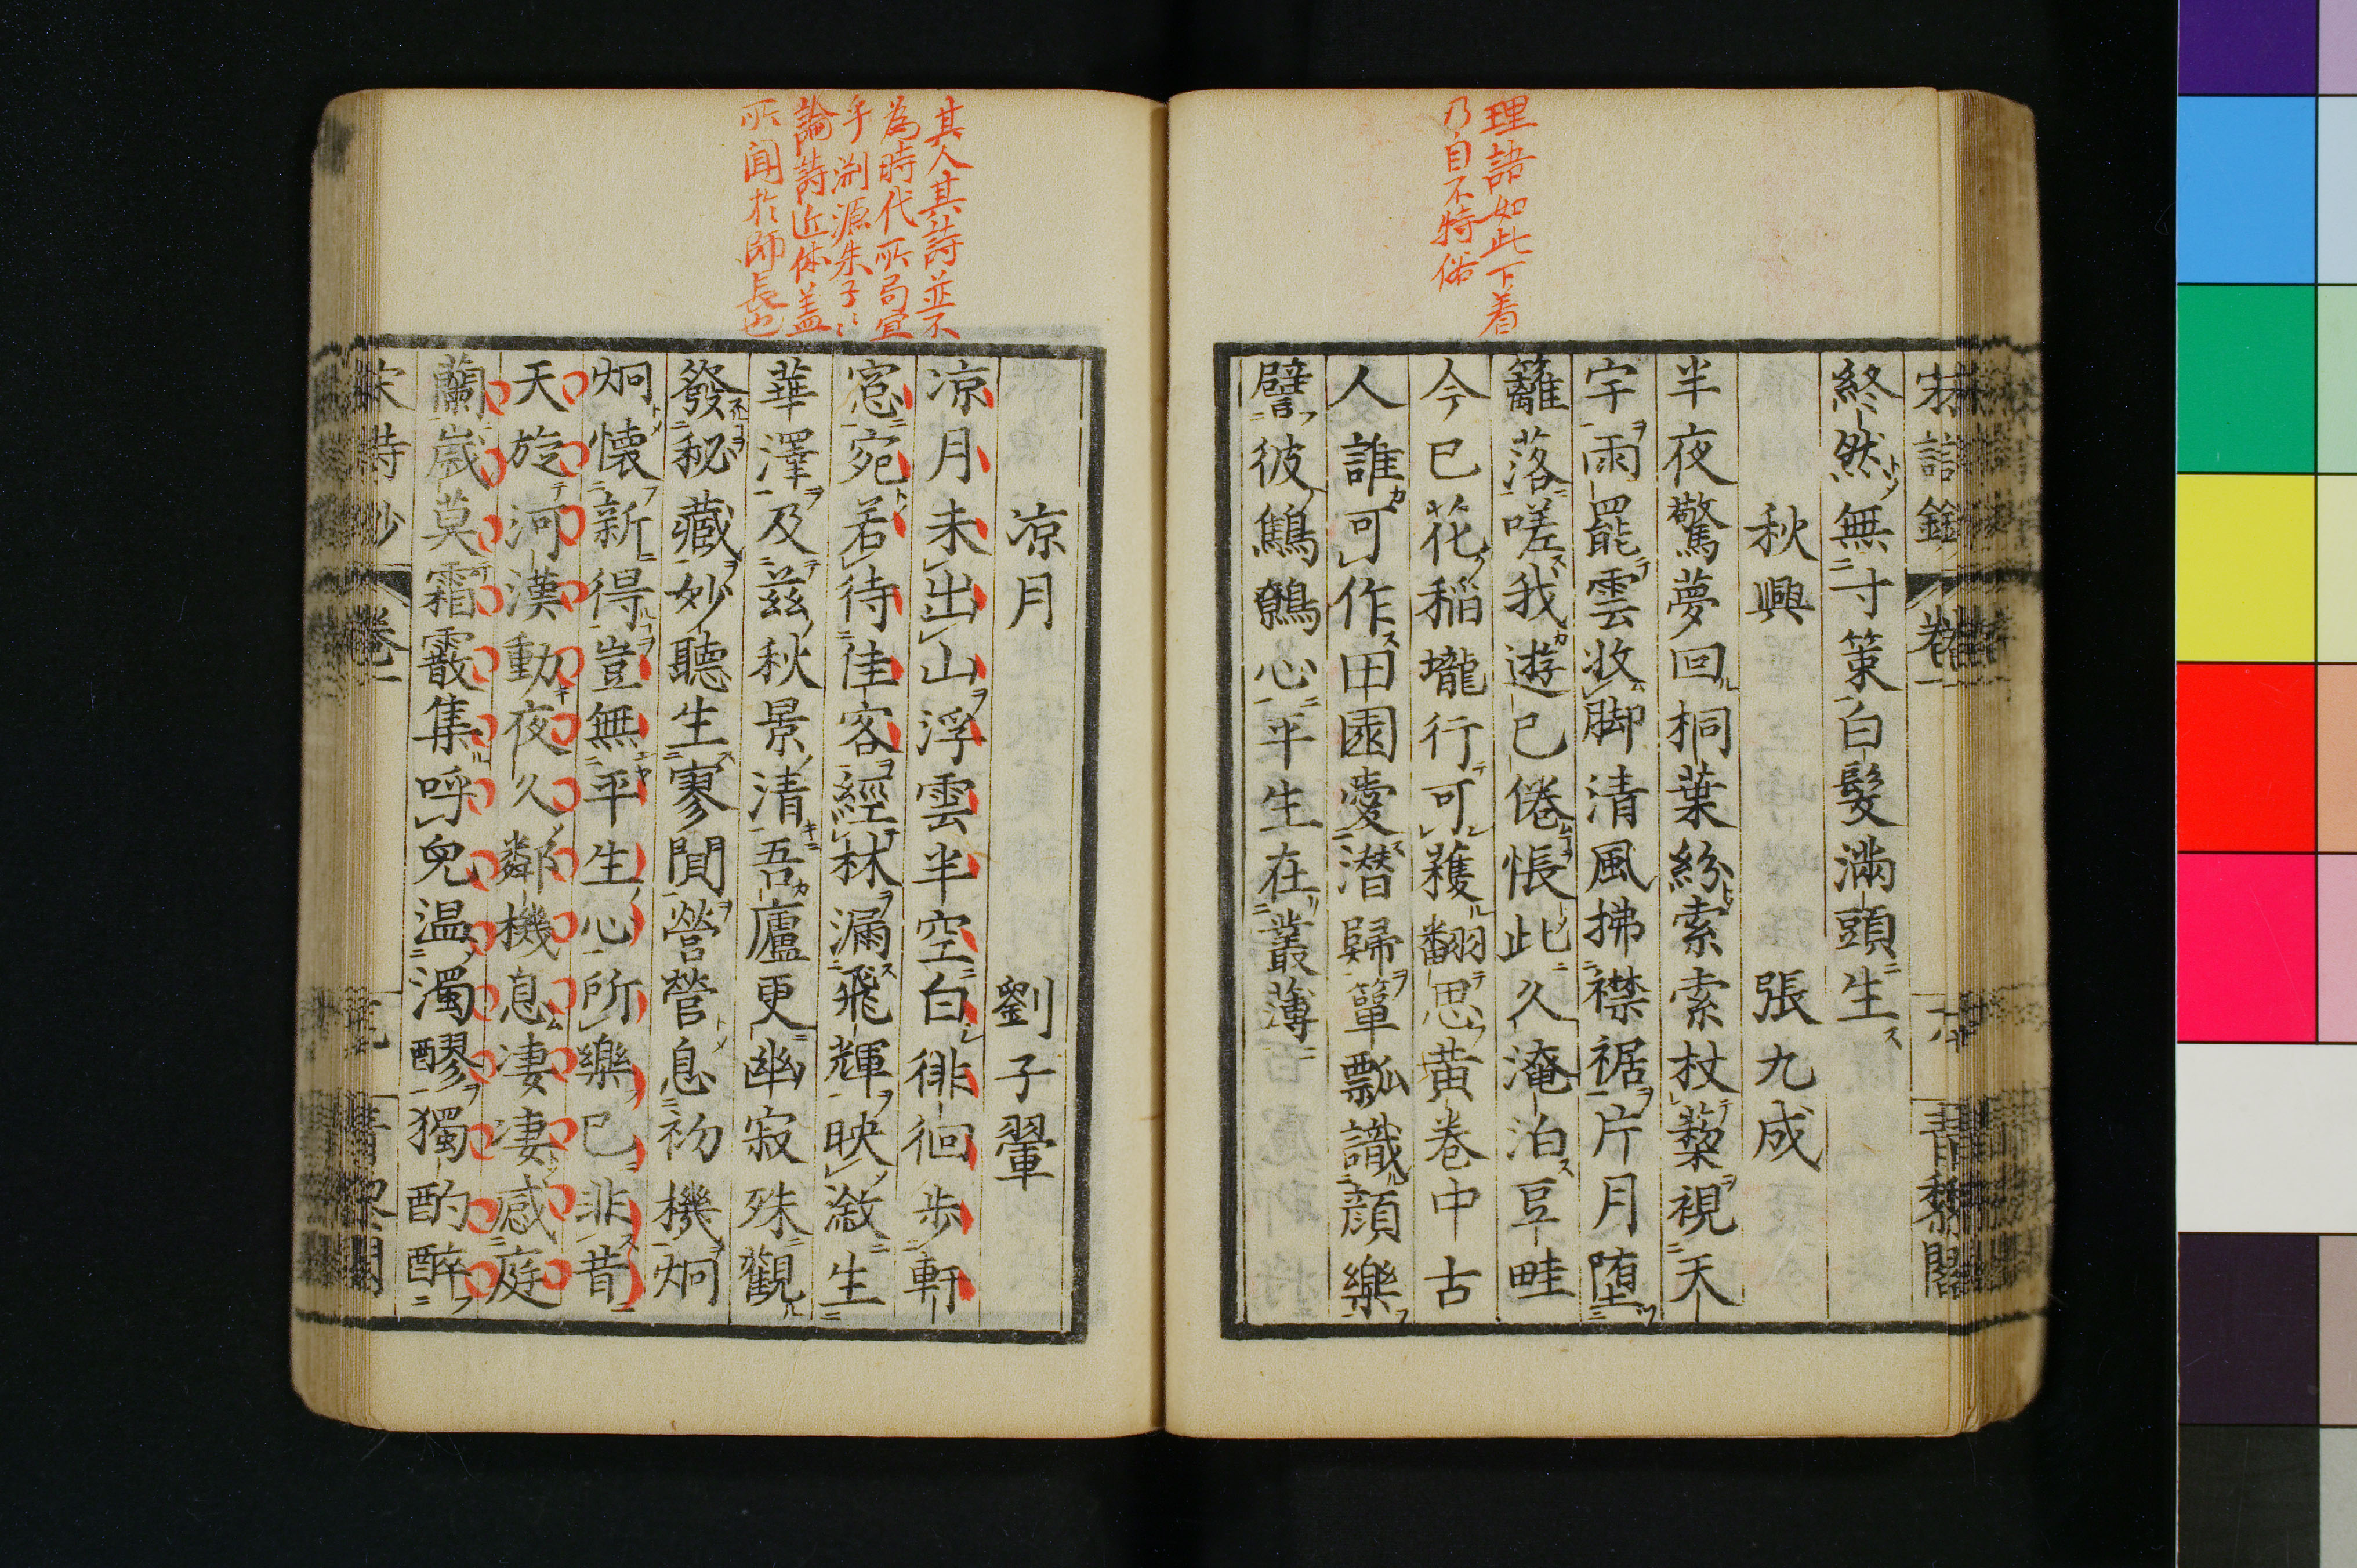 理語如此下着
乃自不特俗
終然無寸策白髮滿頭生
秋興 張九成
半夜驚夢回桐葉紛索索杖藜視天
宇雨罷雲收脚清風拂襟裾片月堕
籬落嗟我遊已倦悵此久淹泊豆畦
今已花稲壠行可穫翻思黄巻中古
人誰可作田園愛潜歸簞瓢識顔樂
譬彼鷦鷯心平生在叢薄
其人其詩並不
為時代所局宜
乎淵源朱子〻
論詩近体盖
所闻於師長也
凉月 劉子翬
凉月未出山浮雲半空白徘徊步軒
窓宛若待佳客經林漏飛輝映潋生
華澤及兹秋景清吾廬更幽寂殊觀
發秘藏妙聽生寥閴營營息初機炯
炯懐新得豈無平生心所樂已非昔
天旋河漢動夜久鄰機息凄凄感庭
蘭歳莫霜霰集呼兒温濁醪獨酌醉